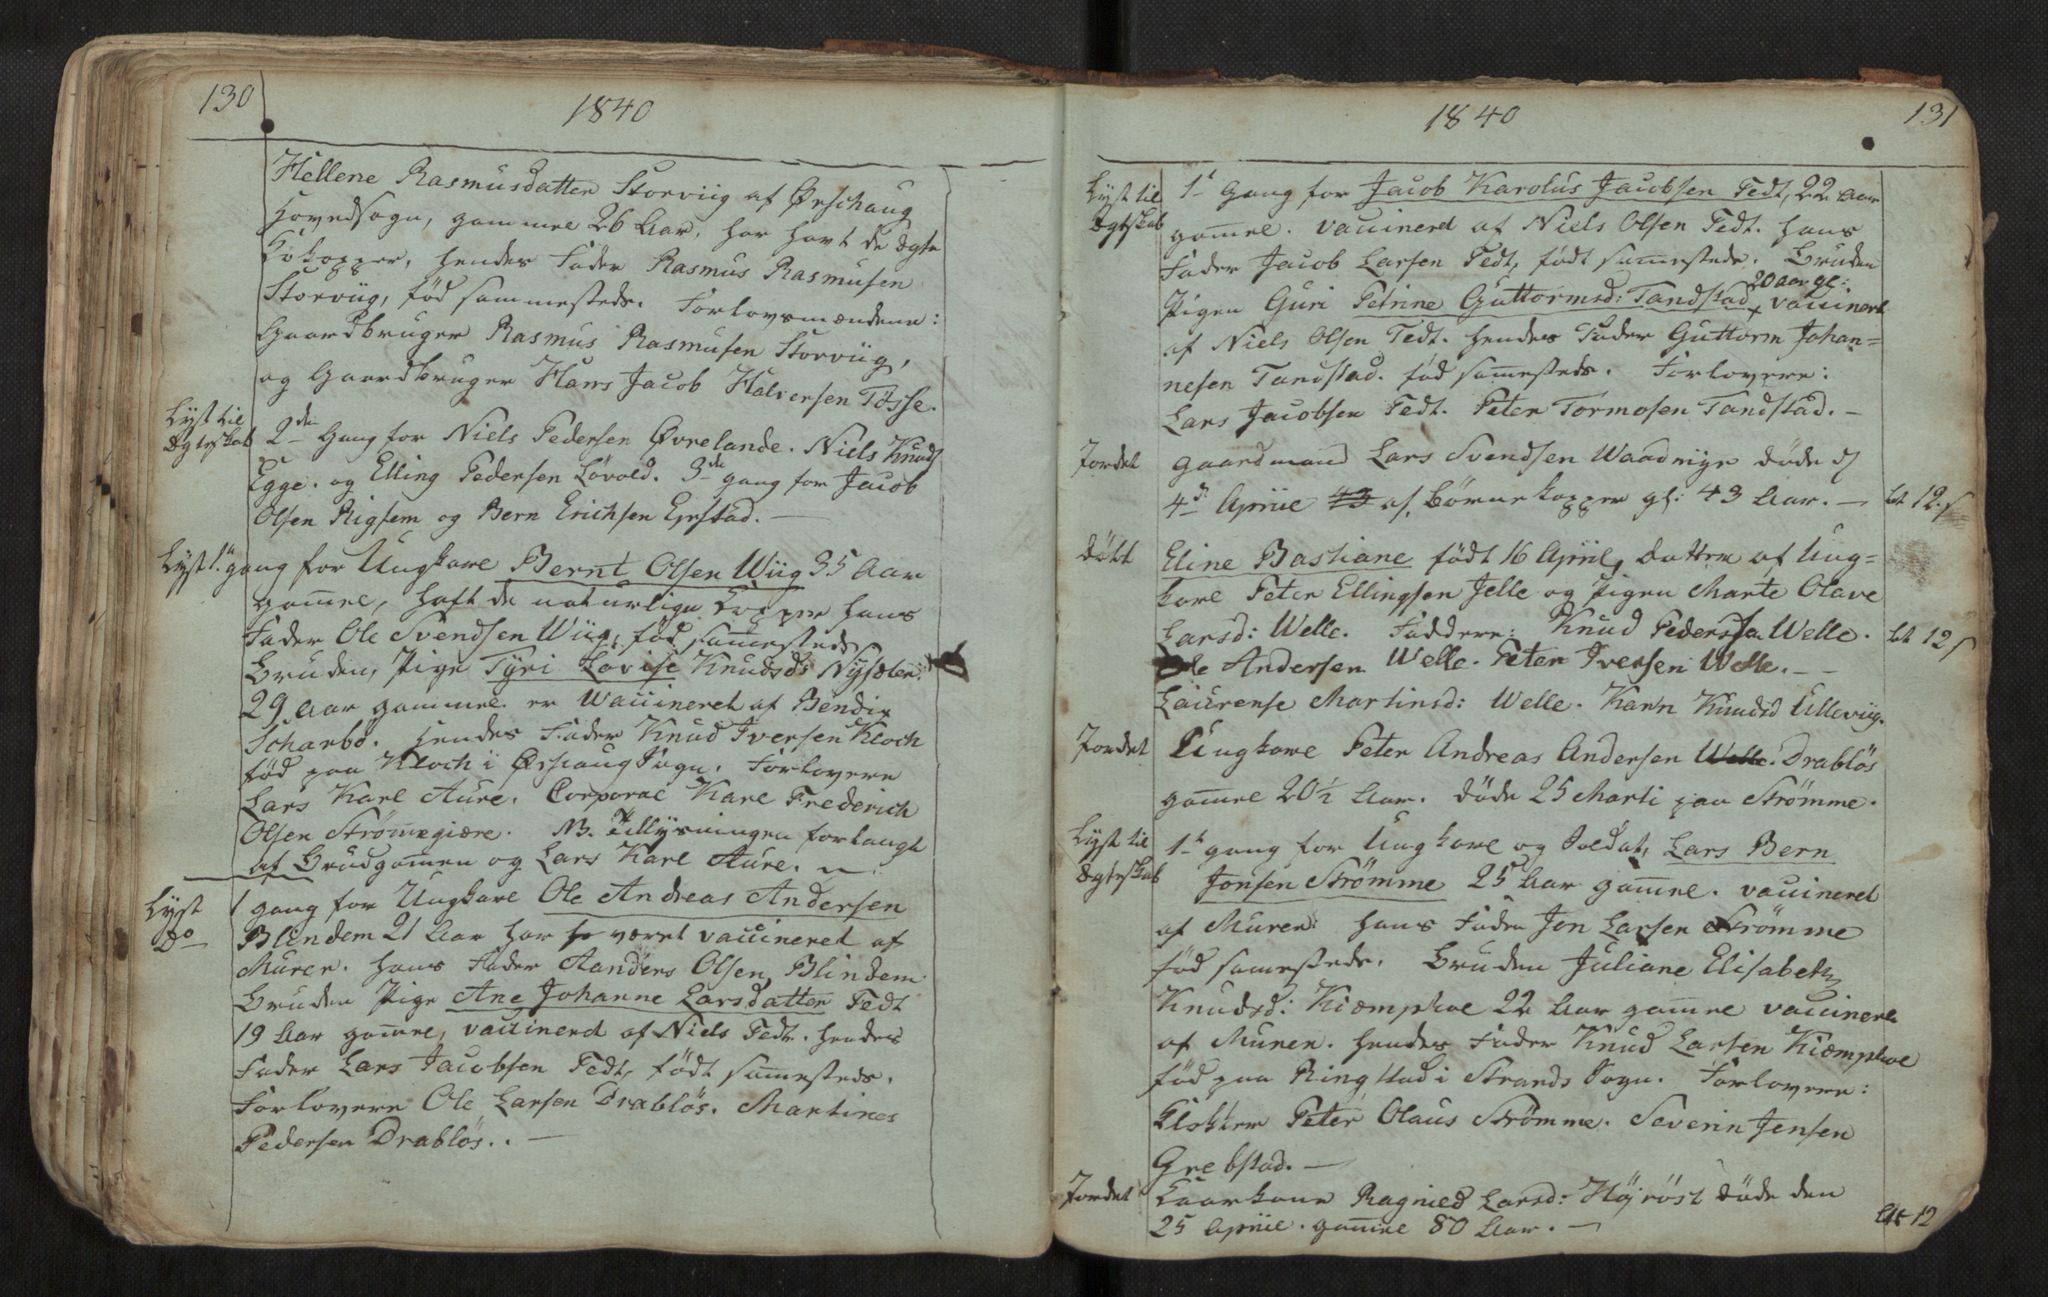 130
1840
Hellene Rasmusdatter Storviig af Ørschaug
Hovedsogn, gammel 26 Aar, har havt de ægte
Kokopper, hendes Fader Rasmus Rasmusen
Storviig, fød sammesteds. Forlovsmændene:
Gaardbruger Rasmus Rasmusen Storviig,
og Gaardbruger Hans Jacob Halvorsen Tøsse.
Lyst til
Ægteskab
2den Gang for Niels Pedersen Øvrelande. Niels Knuds
Egge. og Elling Pedersen Løvold. 3de gang for Jacob
Olsen Rigsem og Bern Erichsen Gjestad. —
Lyst 1te gang for Ungkarl Bernt Olsen Wiig 35 Aar
gam̄el, haft de naturlige Kopper hans
Fader Ole Svendsen Wiig, fød sam̄esteds
Bruden, Pige Tyri Lovise Knudsd: Nysæter:
29 Aar gammel. er Waccineret af Bendix
Scharbø. hendes Fader Knud Iversen Kloch
fød paa Kloch i Ørschaug Sogn. Forlovere
Lars Karl Aure. Corporal Karl Frederich
Olsen Strøm̄egjære. NB. Tillysningen forlangt
af Brudgom̄en og Lars Karl Aure.
Lyst
Do
1 gang for Ungkarl Ole Andreas Andersen
Blindem 21 Aar har været vaccineret af
Murer. hans Fader Aanders Olsen Blindem
Bruden Pige Ane Johanne Larsdatter Fedt
19 Aar gam̄el, vaccinerd af Niels Fedt. hendes
Fader Lars Jacobsen Fedt, født sam̄esteds.
Forlovere Ole Larsen Drabløs. Martines
Pedersen Drabløs. —
1840
131
Lyst til
Ægteskab
1te Gang for Jacob Karolus Jacobsen Fedt, 22 Aar
gam̄el. vaccinerd af Niels Olsen Fedt. hans
Fader Jacob Larsen Fedt, født sam̄estede. Bruden
20 aar gl:
Pigen Guri Petrine Guttormsd: Tandstad, vaccinert
af Niels Olsen Fedt. hendes Fader Guttorm Johan=
nesen Tandstad. fød sam̄esteds. Forlovere:
Lars Jacobsen Fedt. Peter Tormosen Tandstad. —
Jordet
Gaardmand Lars Svendsen Waadmyr døde d
4de April 43 af Børnekopper gl: 43 Aar. —
bt 12 s
Døbt
Eline Bastiane født 16 April, datter af Ung=
karl Peter Ellingsen Jelle og Pigen Marte Olave
Larsd: Welle. Faddere: Knud Pedersen Welle.
bt 12 s
Ole Andersen Welle. Peter Iversen Welle. —
Laurense Martinsd: Welle. Karn Knudsd Ulleviig.
Jordet
Ungkarl Peter Andreas Andersen Welle. Drabløs
gam̄el 20½ Aar. døde 25 Marti paa Strømme.
Lyst til
Ægteskab
1te gang for Ungkarl og Soldat, Lars Bern
Jonsen Strømme 25 Aar gam̄el. vaccineret
af Murer. hans Fader Jon Larsen Strømme
fød sam̄estede. Bruden Juliane Elisabeth
Knudsd: Kiæmphoe 22 Aar gam̄el vaccinert
af Murer. hendes Fader Knud Larsen Kiæmphoe
fød paa Ringstad i Strands Sogn. Forlovere:
Klokker Peter Olaus Strømme. Severin Jensen
Grebstad. —
Jordet
Kaarkone Ragnied Larsd: Højrøst døde den
25 April. gam̄el 80 Aar. —
bt 12